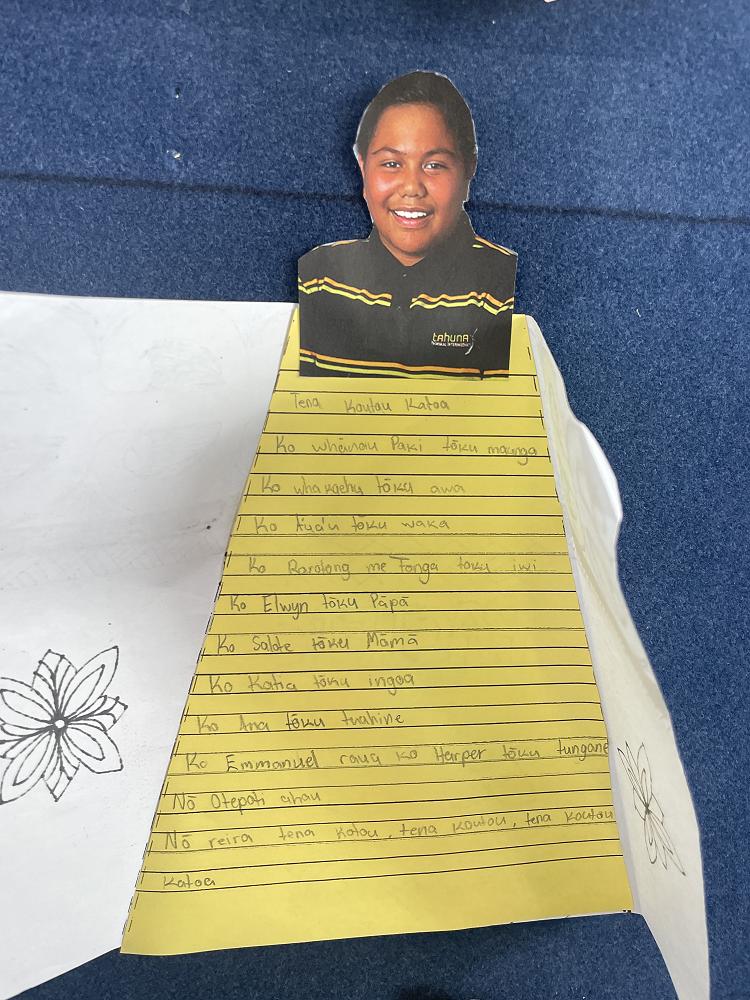 tahuna
NORMAL INTERMEDIATE
Tena koutou katoa
Ko whēnau Paki tōku maunga
Ko whakaehu tōku awa
Ko tōku waka
Ko Rarotong me Tonga toku iwi
Ko Elwyn tōku Pāpā
Ko Salote tōku Māmā
Ko Katia tōku ingoa
Ko Ana tōku tuahine
Ko Emmanuel raua ko Harper tōku tungane
Nō Otepoti ahau
Nō reira tena kotou, tena koutou, tena koutou
katoa